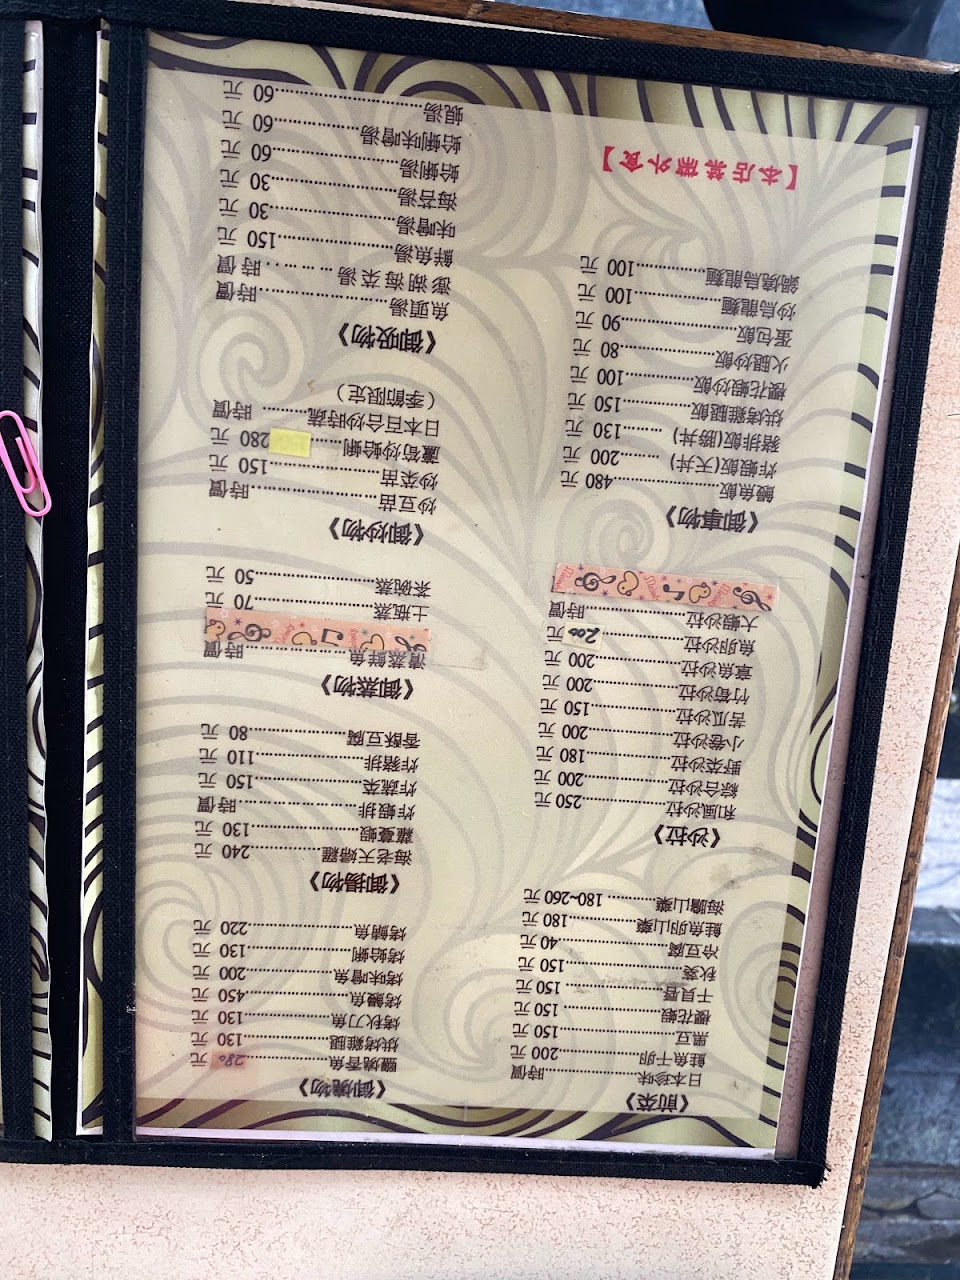 《前菜》
日本珍味……………時價
鮭魚干卵…………200 元
黑豆………………150 元
櫻花蝦……………150 元
干貝唇……………150 元
秋葵………………150 元
冷豆腐……………40 元
鮭魚卵山藥………180 元
海膽山藥………180~260 元
《沙拉》
和風沙拉…………250 元
綜合沙拉…………200 元
野菜沙拉…………180 元
小卷沙拉…………200 元
苦瓜沙拉…………150 元
竹筍沙拉…………200 元
章魚沙拉…………200 元
魚卵沙拉…………200 元
大蝦沙拉……………時價
《御事物》
鰻魚飯……………480 元
炸蝦飯(天丼)………200 元
豬排飯(勝丼)………130 元
烘烤雞腿飯………150 元
櫻花蝦炒飯………100 元
火腿炒飯…………80 元
蛋包飯……………90 元
炒烏龍麵…………100 元
鍋燒烏龍麵………100 元
【本店禁帶外食】
《御燒物》
鹽燒香魚…………280 元
烘烤雞腿…………130 元
烤秋刀魚…………130 元
烤鰻魚……………450 元
烤味噌魚…………200 元
烤蛤蜊……………130 元
烤鯖魚……………220 元
《御揚物》
海老天婦羅………240 元
蘿蔓蝦……………130 元
炸蝦排………………時價
炸蔬菜……………150 元
炸豬排……………110 元
香酥豆腐…………80 元
《御蒸物》
清蒸鮮魚……………時價
土瓶蒸……………70 元
茶碗蒸……………50 元
《御炒物》
炒豆苗………………時價
炒菜苗……………150 元
蘆筍炒蛤蜊………280 元
日本百合炒時蔬………時價
(季節限定)
《御吸物》
魚頭湯………………時價
澎湖海菜湯…………時價
鮮魚湯……………150 元
味噌湯……………30 元
海苔湯……………30 元
蛤蜊湯……………60 元
蛤蜊味噌湯………60 元
蜆湯………………60 元